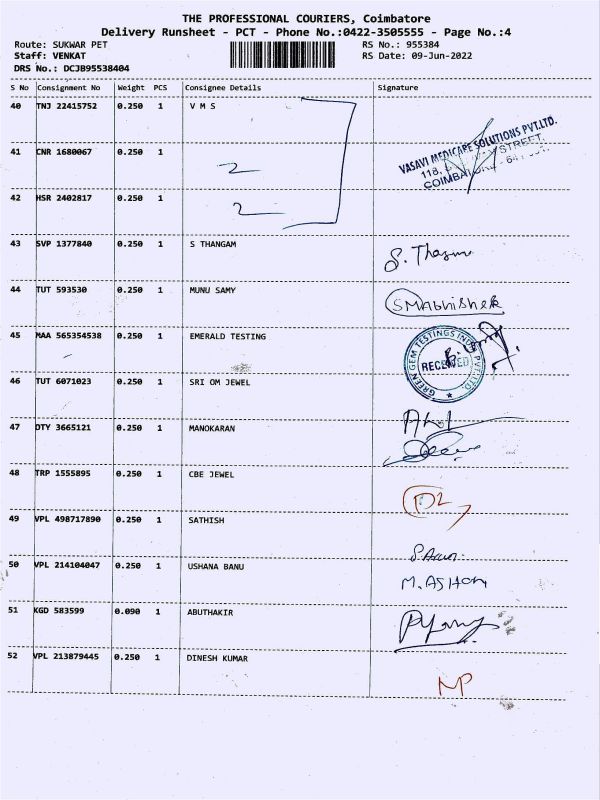 THE PROFESSIONAL COURIERS, Coimbatore
Delivery Runsheet - PCT - Phone No.:0422-3505555 - Page No.:4
Route: SUKWAR PET RS No.: 955384
Staff: VENKAT RS Date: 09-Jun-2022
DRS No.: DCJB95538404
S No Consignment No Weight PCS Consignee Details Signature
40 TNJ 22415752 0.250 1 V M S
VASAVI MEDICARE SOLUTIONS PVT.LTD.
118, STREET,
COIMBATORE - 641
41 CNR 1680067 0.250 1
42 HSR 2402817 0.250 1
43 SVP 1377840 0.250 1 S THANGAM
44 TUT 593530 0.250 1 MUNU SAMY
SMAbhishek
45 MAA 565354538 0.250 1 EMERALD TESTING
GREEN GEM TESTINGS INDIA PVT.LTD.
RECEIVED
46 TUT 6071023 0.250 1 SRI OM JEWEL
47 DTY 3665121 0.250 1 MANOKARAN
48 TRP 1555895 0.250 1 CBE JEWEL
D2
49 VPL 498717890 0.250 1 SATHISH
50 VPL 214104047 0.250 1 USHANA BANU
M. ASHOK
51 KGD 583599 0.090 1 ABUTHAKIR
52 VPL 213879445 0.250 1 DINESH KUMAR
NP